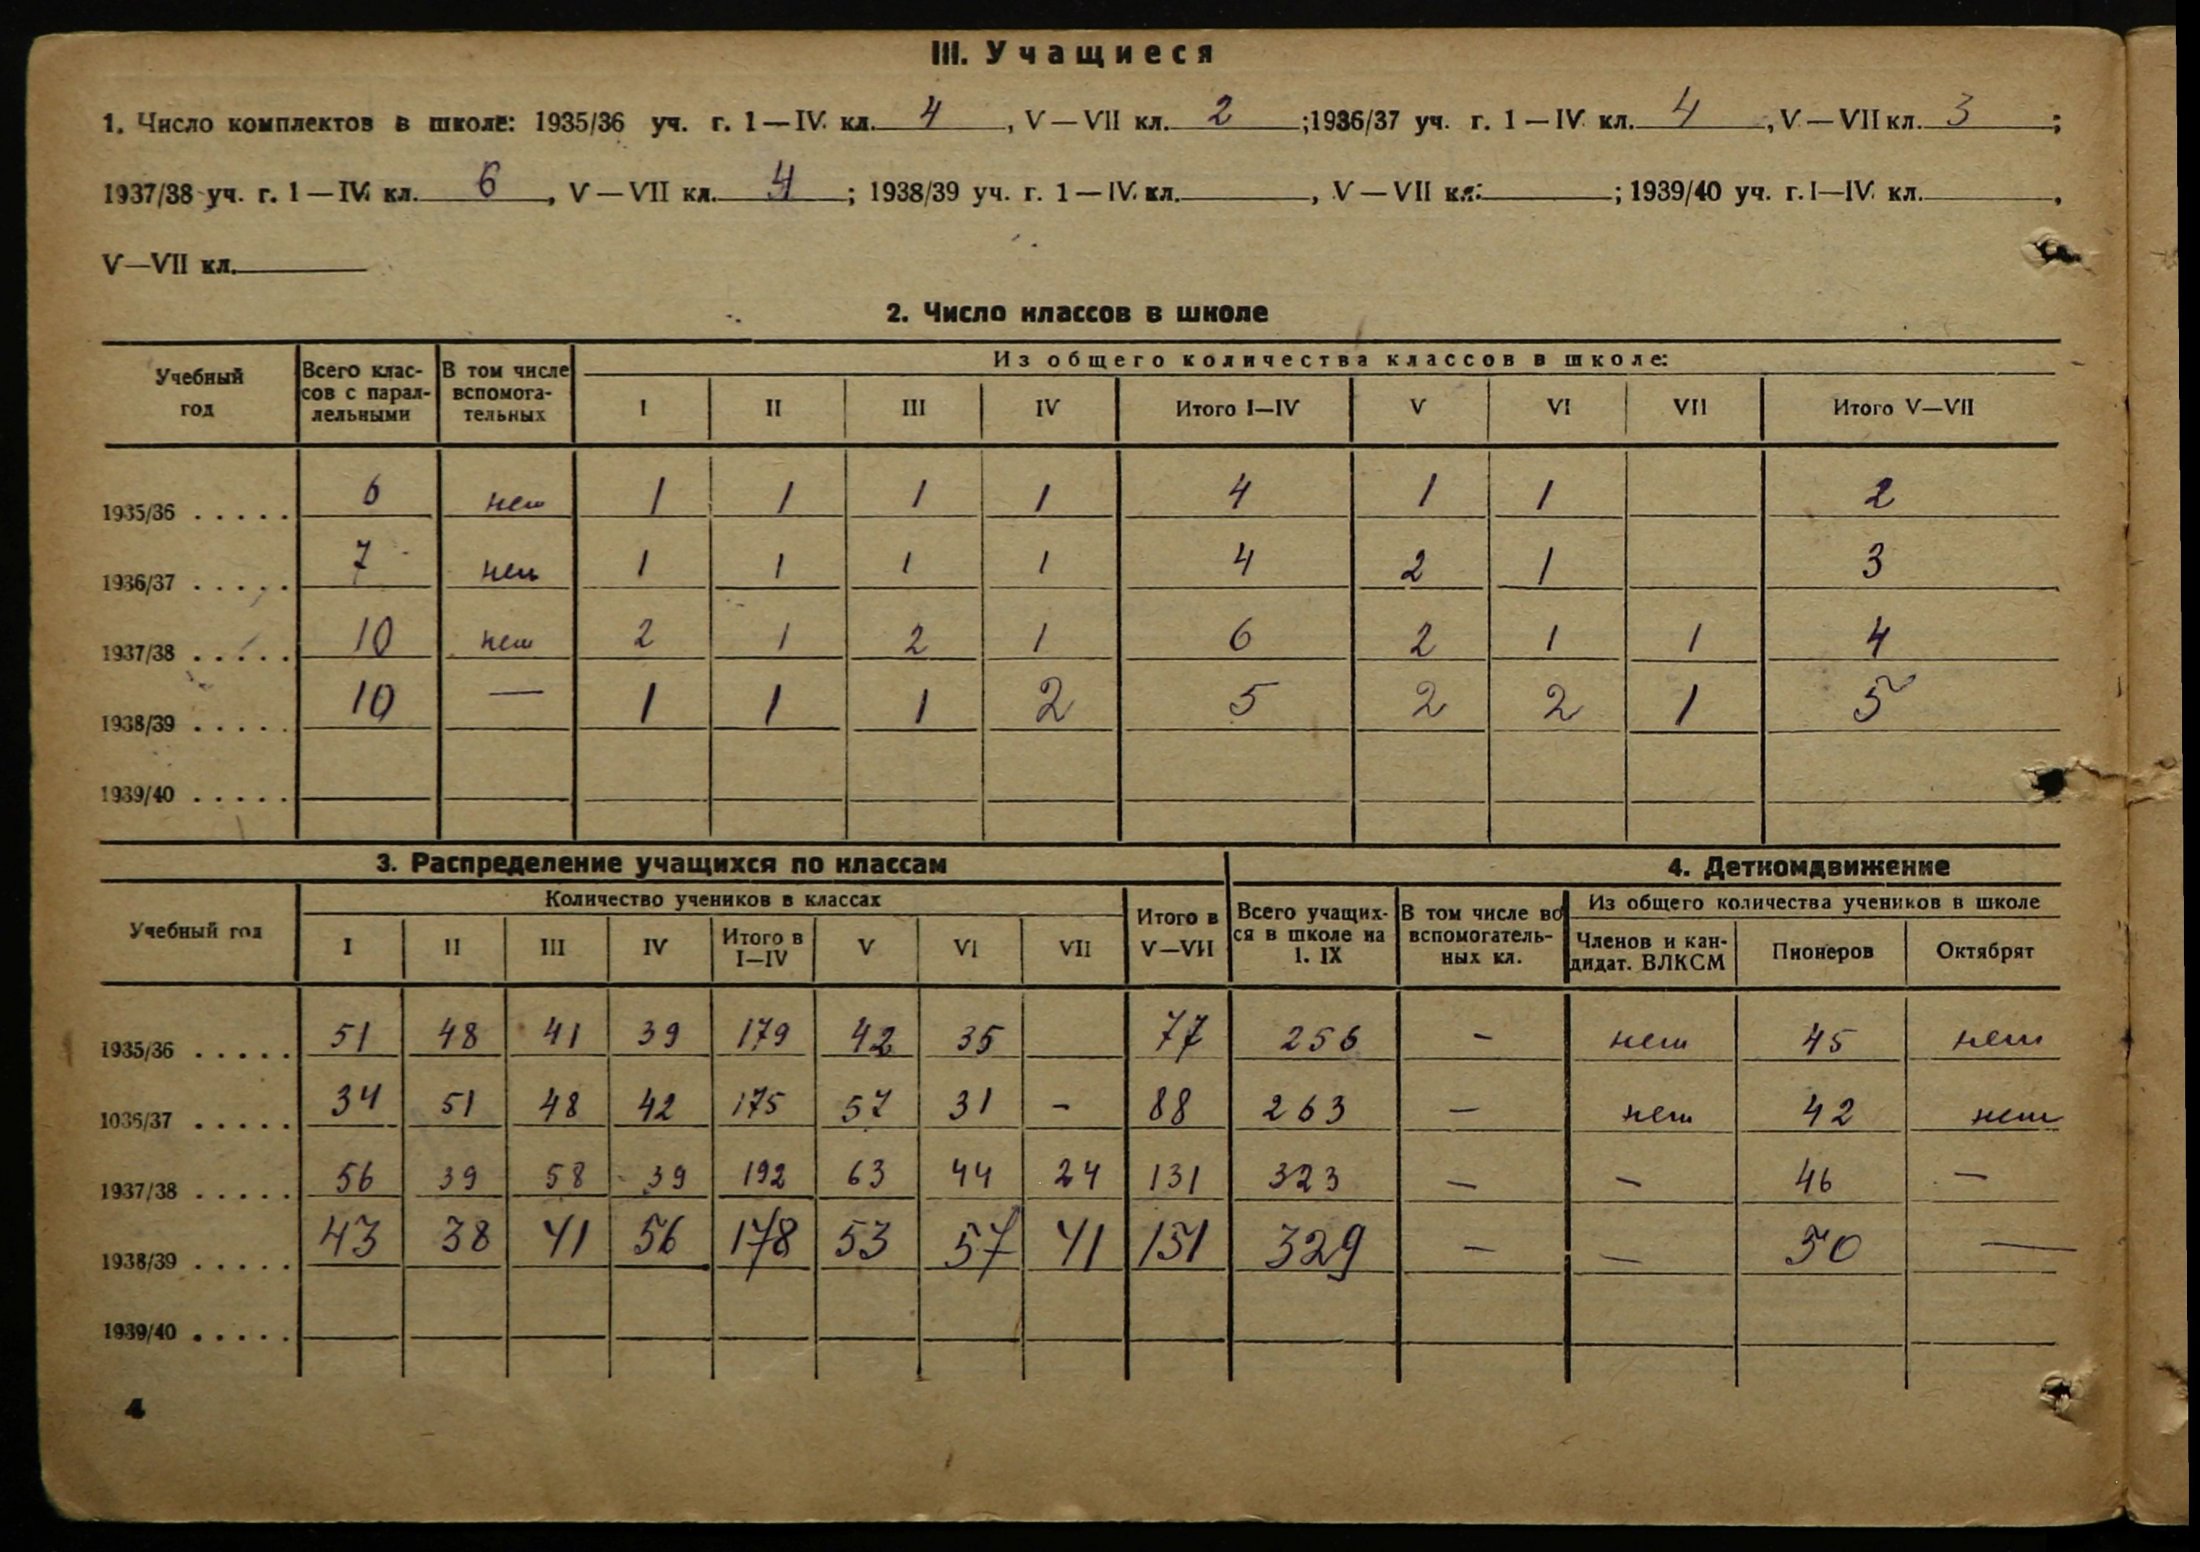 III. Учащиеся
1. Число комплектов в школе: 1935/36 уч. г. 1—IV кл. 4, V—VII кл. 2; 1936/37 уч. г. 1—IV кл. 4, V—VII кл. 3;
1937/38 уч. г. 1—IV кл. 6, V—VII кл. 4; 1938/39 уч. г. 1—IV кл. , V—VII кл. ; 1939/40 уч. г. I—IV кл. ,
V—VII кл.
2. Число классов в школе
Учебный год | Всего классов с параллельными | В том числе вспомогательных | Из общего количества классов в школе:
I | II | III | IV | Итого I—IV | V | VI | VII | Итого V—VII
1935/36 ..... 6 | нет | 1 | 1 | 1 | 1 | 4 | 1 | 1 | | 2
1936/37 ..... 7 | нет | 1 | 1 | 1 | 1 | 4 | 2 | 1 | | 3
1937/38 ..... 10 | нет | 2 | 1 | 2 | 1 | 6 | 2 | 1 | 1 | 4
1938/39 ..... 10 | — | 1 | 1 | 1 | 2 | 5 | 2 | 2 | 1 | 5
1939/40 .....
3. Распределение учащихся по классам | 4. Деткомдвижение
Учебный год | Количество учеников в классах | Итого в V—VII | Всего учащихся в школе на 1. IX | В том числе во вспомогательных кл. | Из общего количества учеников в школе
I | II | III | IV | Итого в I—IV | V | VI | VII | Членов и кандидат. ВЛКСМ | Пионеров | Октябрят
1935/36 ..... 51 | 48 | 41 | 39 | 179 | 42 | 35 | | 77 | 256 | — | нет | 45 | нет
1036/37 ..... 34 | 51 | 48 | 42 | 175 | 57 | 31 | — | 88 | 263 | — | нет | 42 | нет
1937/38 ..... 56 | 39 | 58 | 39 | 192 | 63 | 44 | 24 | 131 | 323 | — | — | 46 | —
1938/39 ..... 43 | 38 | 41 | 56 | 178 | 53 | 57 | 41 | 151 | 329 | — | — | 50 | —
1939/40 .....
4